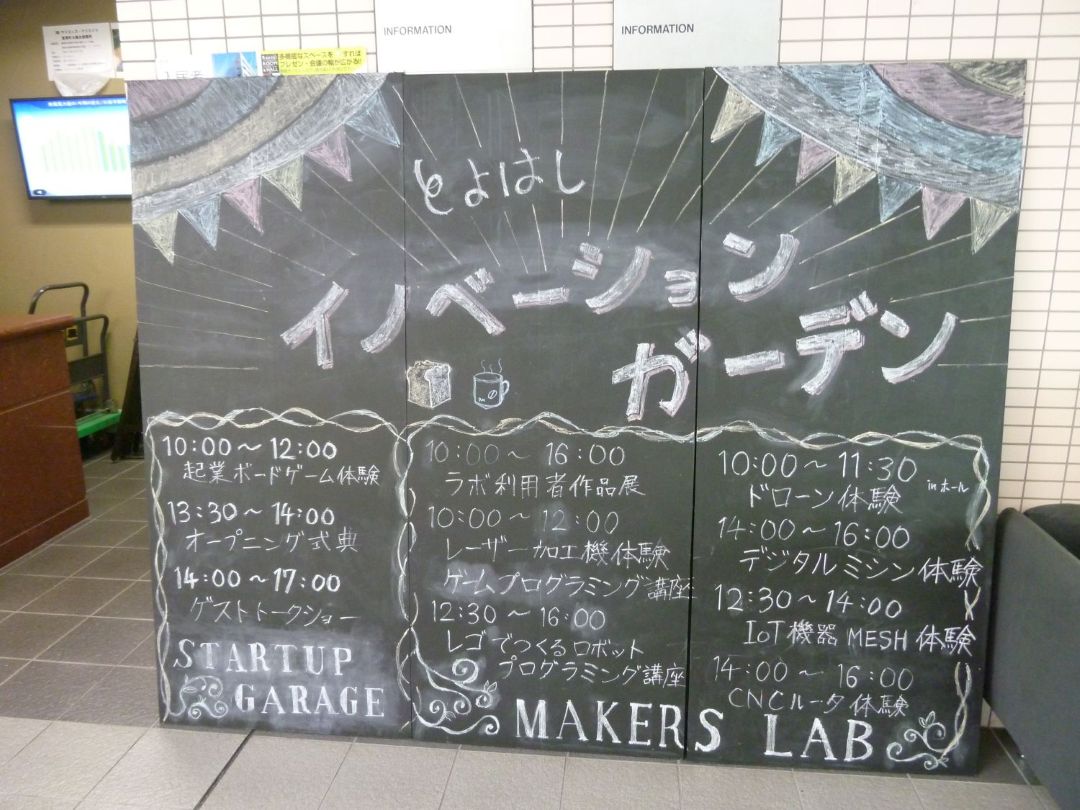 INFORMATION
INFORMATION
多機能なスペースを
すれば
プレゼン・会議の幅が広がる!!
とよはし
イノベーション
ガーデン
10:00～12:00
起業ボードゲーム体験
13:30～14:00
オープニング式典
14:00～17:00
ゲストトークショー
STARTUP
GARAGE
10:00～16:00
ラボ利用者作品展
10:00～12:00
レーザー加工機体験
ゲームプログラミング講座
12:30～16:00
レゴでつくるロボット
プログラミング講座
10:00～11:30
ドローン体験
inホール
14:00～16:00
デジタルミシン体験
12:30～14:00
IoT機器MESH体験
14:00～16:00
CNCルータ体験
MAKERS LAB